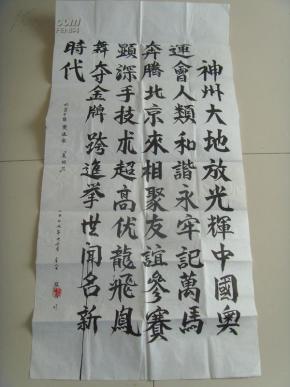 神州大地放光輝中國奥
運會人類和諧永牢記萬馬
奔騰北京來相聚友誼參賽
顯深手技术超高伏龍飛鳳
舞夺金牌跨進举世闻名新
時代